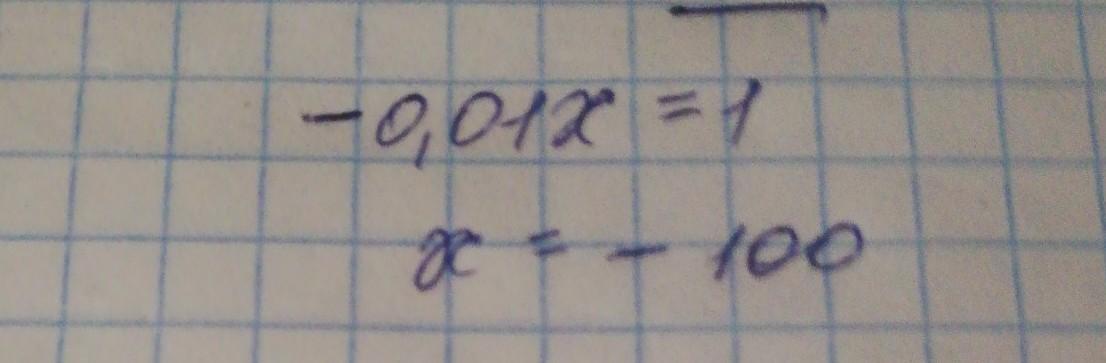 -0,01x = 1
x = - 100